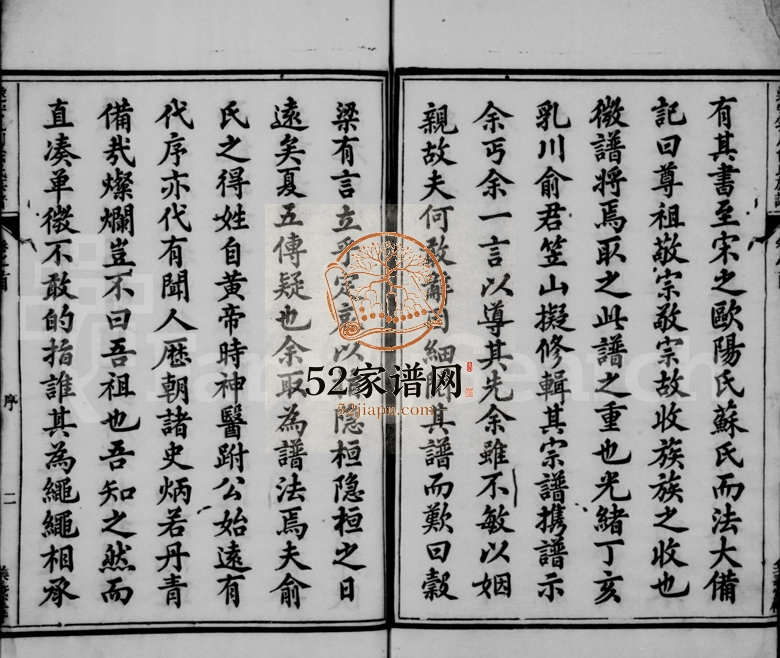 有其書至宋之歐陽氏蘇氏而法大備
記曰尊祖敬宗敬宗故收族族之收也
微譜將焉取之此譜之重也光緒丁亥
乳川俞君笠山擬修輯其宗譜携譜示
余丐余一言以導其先余雖不敏以姻
親故夫何敢辭 細 其譜而歎曰穀
梁有言立乎定哀以 隐桓隐桓之日
遠矣夏五傳疑也余取為譜法焉夫俞
氏之得姓自黄帝時神醫跗公始遠有
代序亦代有聞人歷朝諸史炳若丹青
備哉燦爛豈不曰吾祖也吾知之然而
直湊单微不敢的指誰其為繩繩相承
序
二
52家谱网
52jiapu.com